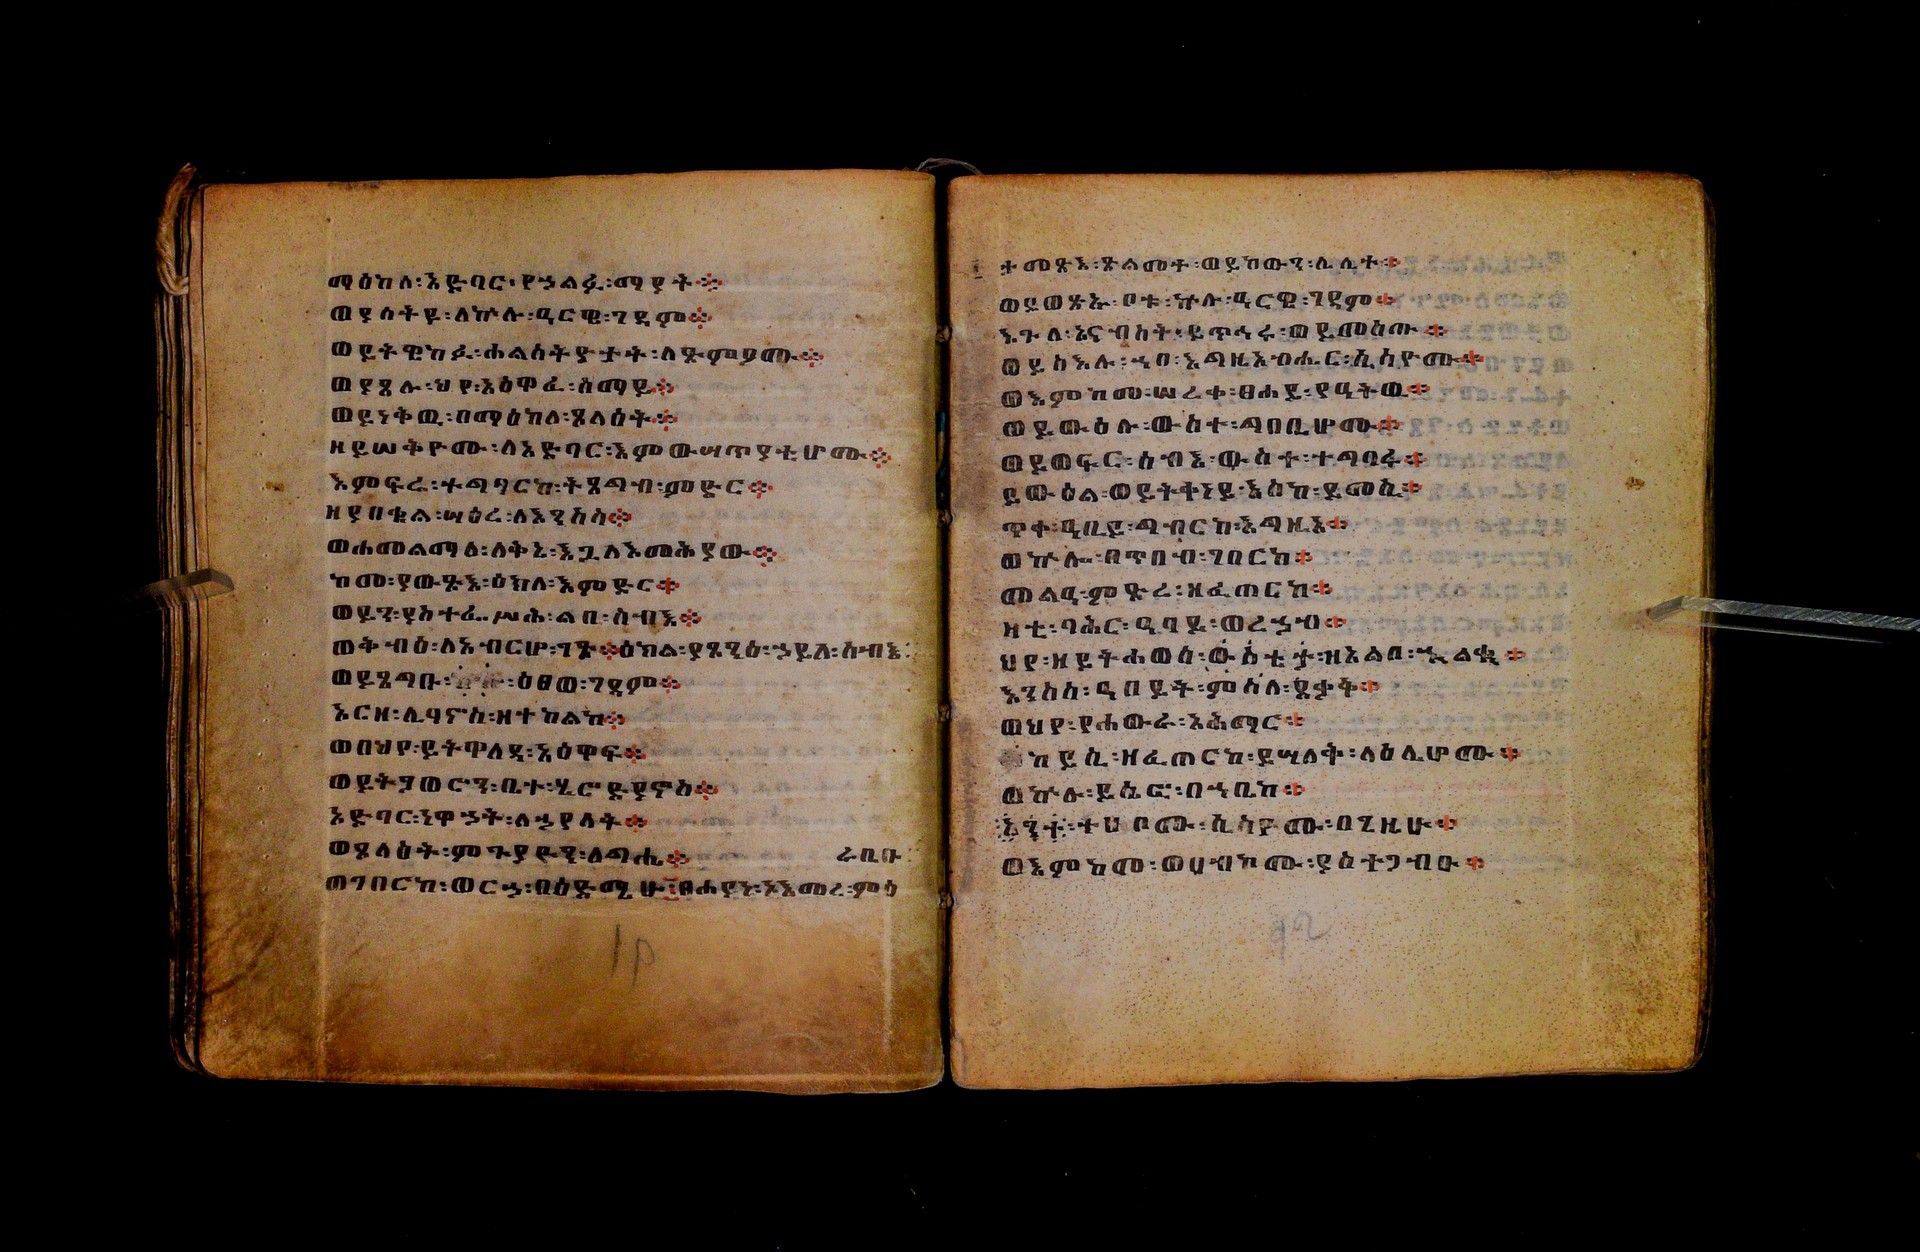 ማዕከለ፡አድባር፡የኃልፍ፡ማያት።
ወያሰትይ፡ለኵሉ፡ዲርዊ፡ገዳም።
ወይትዌከፉ፡ሐልስትያታት፡ለጽምዖሙ።
ወያጼሉ፡ህየ፡አዕዋፈ፡ሰማይ።
ወይነቅዉ፡በማዕከለ፡ጾላዕት።
ዘይሠቅዮሙ፡ለአድባር፡እምውሣጥያቲሆሙ።
እምፍሬ፡ተግባርከ፡ትጸግብ፡ምድር።
ዘያበቍል፡ሣዕረ፡ለእንስሳ።
ወሐመልማለ፡ለቅኔ፡እጓለእመሕያው።
ከመ፡ያውጽእ፡እክለ፡እምድር።
ወይን፡ያስተፌሥሕ፡ልበ፡ሰብእ።
ወቅብዕ፡ለአብርሆ፡ገጽ።እክል፡ያጸንዕ፡ኃይለ፡ሰብእ፡
ወይጸግቡ፡ ፡ዕፀወ፡ገዳም።
አርዘ፡ሊባኖስ፡ዘተከልከ።
ወበህየ፡ይትዋለዳ፡አዕዋፍ።
ወይትጓወሮን፡ቤተ፡ሄሮድያኖስ።
አድባር፡ነዋኃት፡ለኃየላት።
ወጾላዕት፡ምጕያዮን፡ለግሒ።
ራቢሁ፡
ወገበርከ፡ወርኃ፡በዕድሜሁ።ፀሐይኒ፡አእመረ፡ምዕ
ተመጽአ፡ጽልመተ፡ወይከውን፡ሌሊተ።
ወይወፅኡ፡ቦቱ፡ኵሉ፡ዲርዊ፡ገዳም።
እጕለ፡አናብስት፡ይጥኅሩ፡ወይመስጡ።
ወይስእሉ፡ኀበ፡እግዚአብሔር፡ሲሳዮሙ።
ወእምከመ፡ሠረቀ፡ፀሐይ፡የዓትዉ።
ወይውዕሉ፡ውስተ፡ግበቢሆሙ።
ወይወፍር፡ሰብእ፡ውስተ፡ተግባሩ።
ይውዕል፡ወይትቀነይ፡እስከ፡ይመሲ።
ጥቀ፡ዓቢይ፡ግብርከ፡እግዚኦ።
ወኵሎ፡በጥበብ፡ገበርከ።
መልዓ፡ምድረ፡ዘፈጠርከ።
ዛቲ፡ባሕር፡ዓባይ፡ወረኃብ።
ህየ፡ዘይትሐወስ፡ውስቴታ፡ዘአልቦ፡ኍልቈ።
እንስሳ፡ዓበይት፡ምስለ፡ደቃቅ።
ወህየ፡የሐውራ፡አሕማር።
ከይሲ፡ዘፈጠርከ፡ይሣለቅ፡ላዕሌሆሙ።
ወኵሉ፡ይሴፎ፡በኀቤከ።
አንተ፡ተሀቦሙ፡ሲሳዮሙ፡በጊዜሁ።
ወእምከመ፡ወሀብኮሙ፡ያስተጋብኡ።